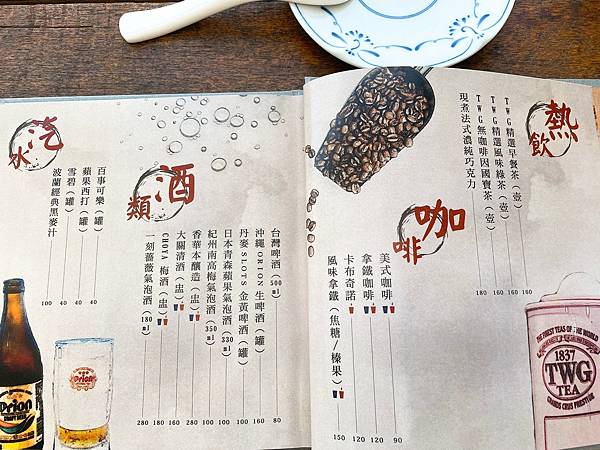 熱飲
TWG精選早餐茶（壺） 160
TWG精選風味綠茶（壺） 160
TWG無咖啡因國寶茶（壺） 160
現煮法式濃純巧克力 180
咖啡
美式咖啡 90
拿鐵咖啡 120
卡布奇諾 120
風味拿鐵（焦糖/榛果） 150
酒類
台灣啤酒（500ml） 80
沖繩ORION生啤酒（罐） 160
丹麥SLOTS金黃啤酒（罐） 100
日本青森蘋果氣泡酒（330ml） 100
紀州南高梅氣泡酒（350ml） 100
香華本釀造（盅） 200
大關清酒（盅） 180
CHOYA梅酒（盅） 180
一刻薔薇氣泡酒（180ml） 280
汽水
百事可樂（罐） 40
蘋果西打（罐） 40
雪碧（罐） 40
波蘭經典黑麥汁 100
Orion
Orion
THE FINEST TEAS OF THE WORLD
1837
TWG
TEA
GRANDS CRUS PRESTIGE